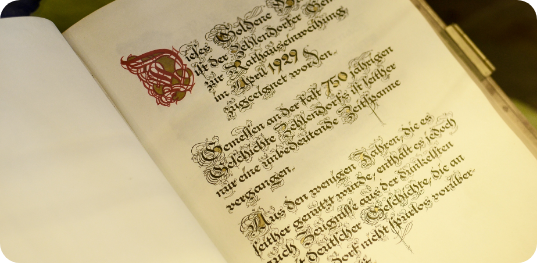 Dieses Goldene
ist der Zehlendorfer
zur Rathauseinweihung
im April 1929
zugeeignet worden.
Gemessen an der fast 750 jährigen
Geschichte Zehlendorfs ist seither
nur eine unbedeutende Zeitspanne
vergangen.
Aus den wenigen Jahren, die es
seither genutzt wurde, enthält es jedoch
auch Zeugnisse aus der dunkelsten
deutscher Geschichte, die an
dorf nicht spurlos vorüber-